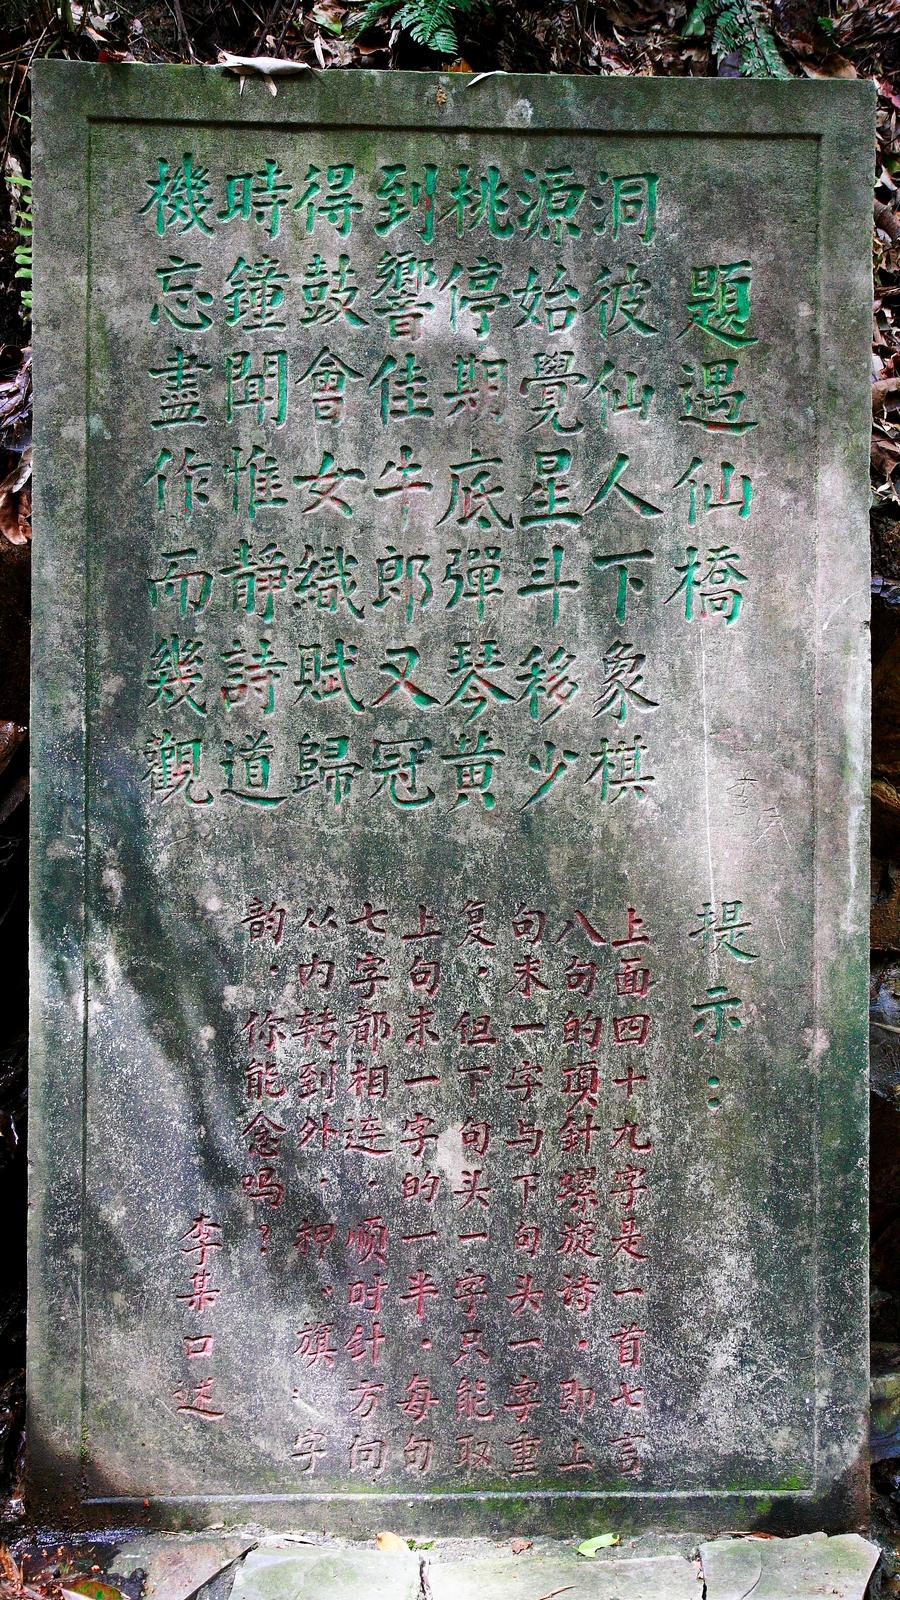 題遇仙橋
洞彼仙人下象棋
源始覺星斗移少
桃停期底彈琴黄
到響佳牛郎又冠
得鼓會女織賦歸
時鐘聞惟静詩道
機忘盡作而幾觀
提示：
上面四十九字是一首七言
八句的顶針螺旋诗．即上
句末一字与下句头一字重
复．但下句头一字只能取
上句末一字的一半．每句
七字都相连．顺时针方向
从内转到外．押、旗．字
韵．你能念吗？
李某口述